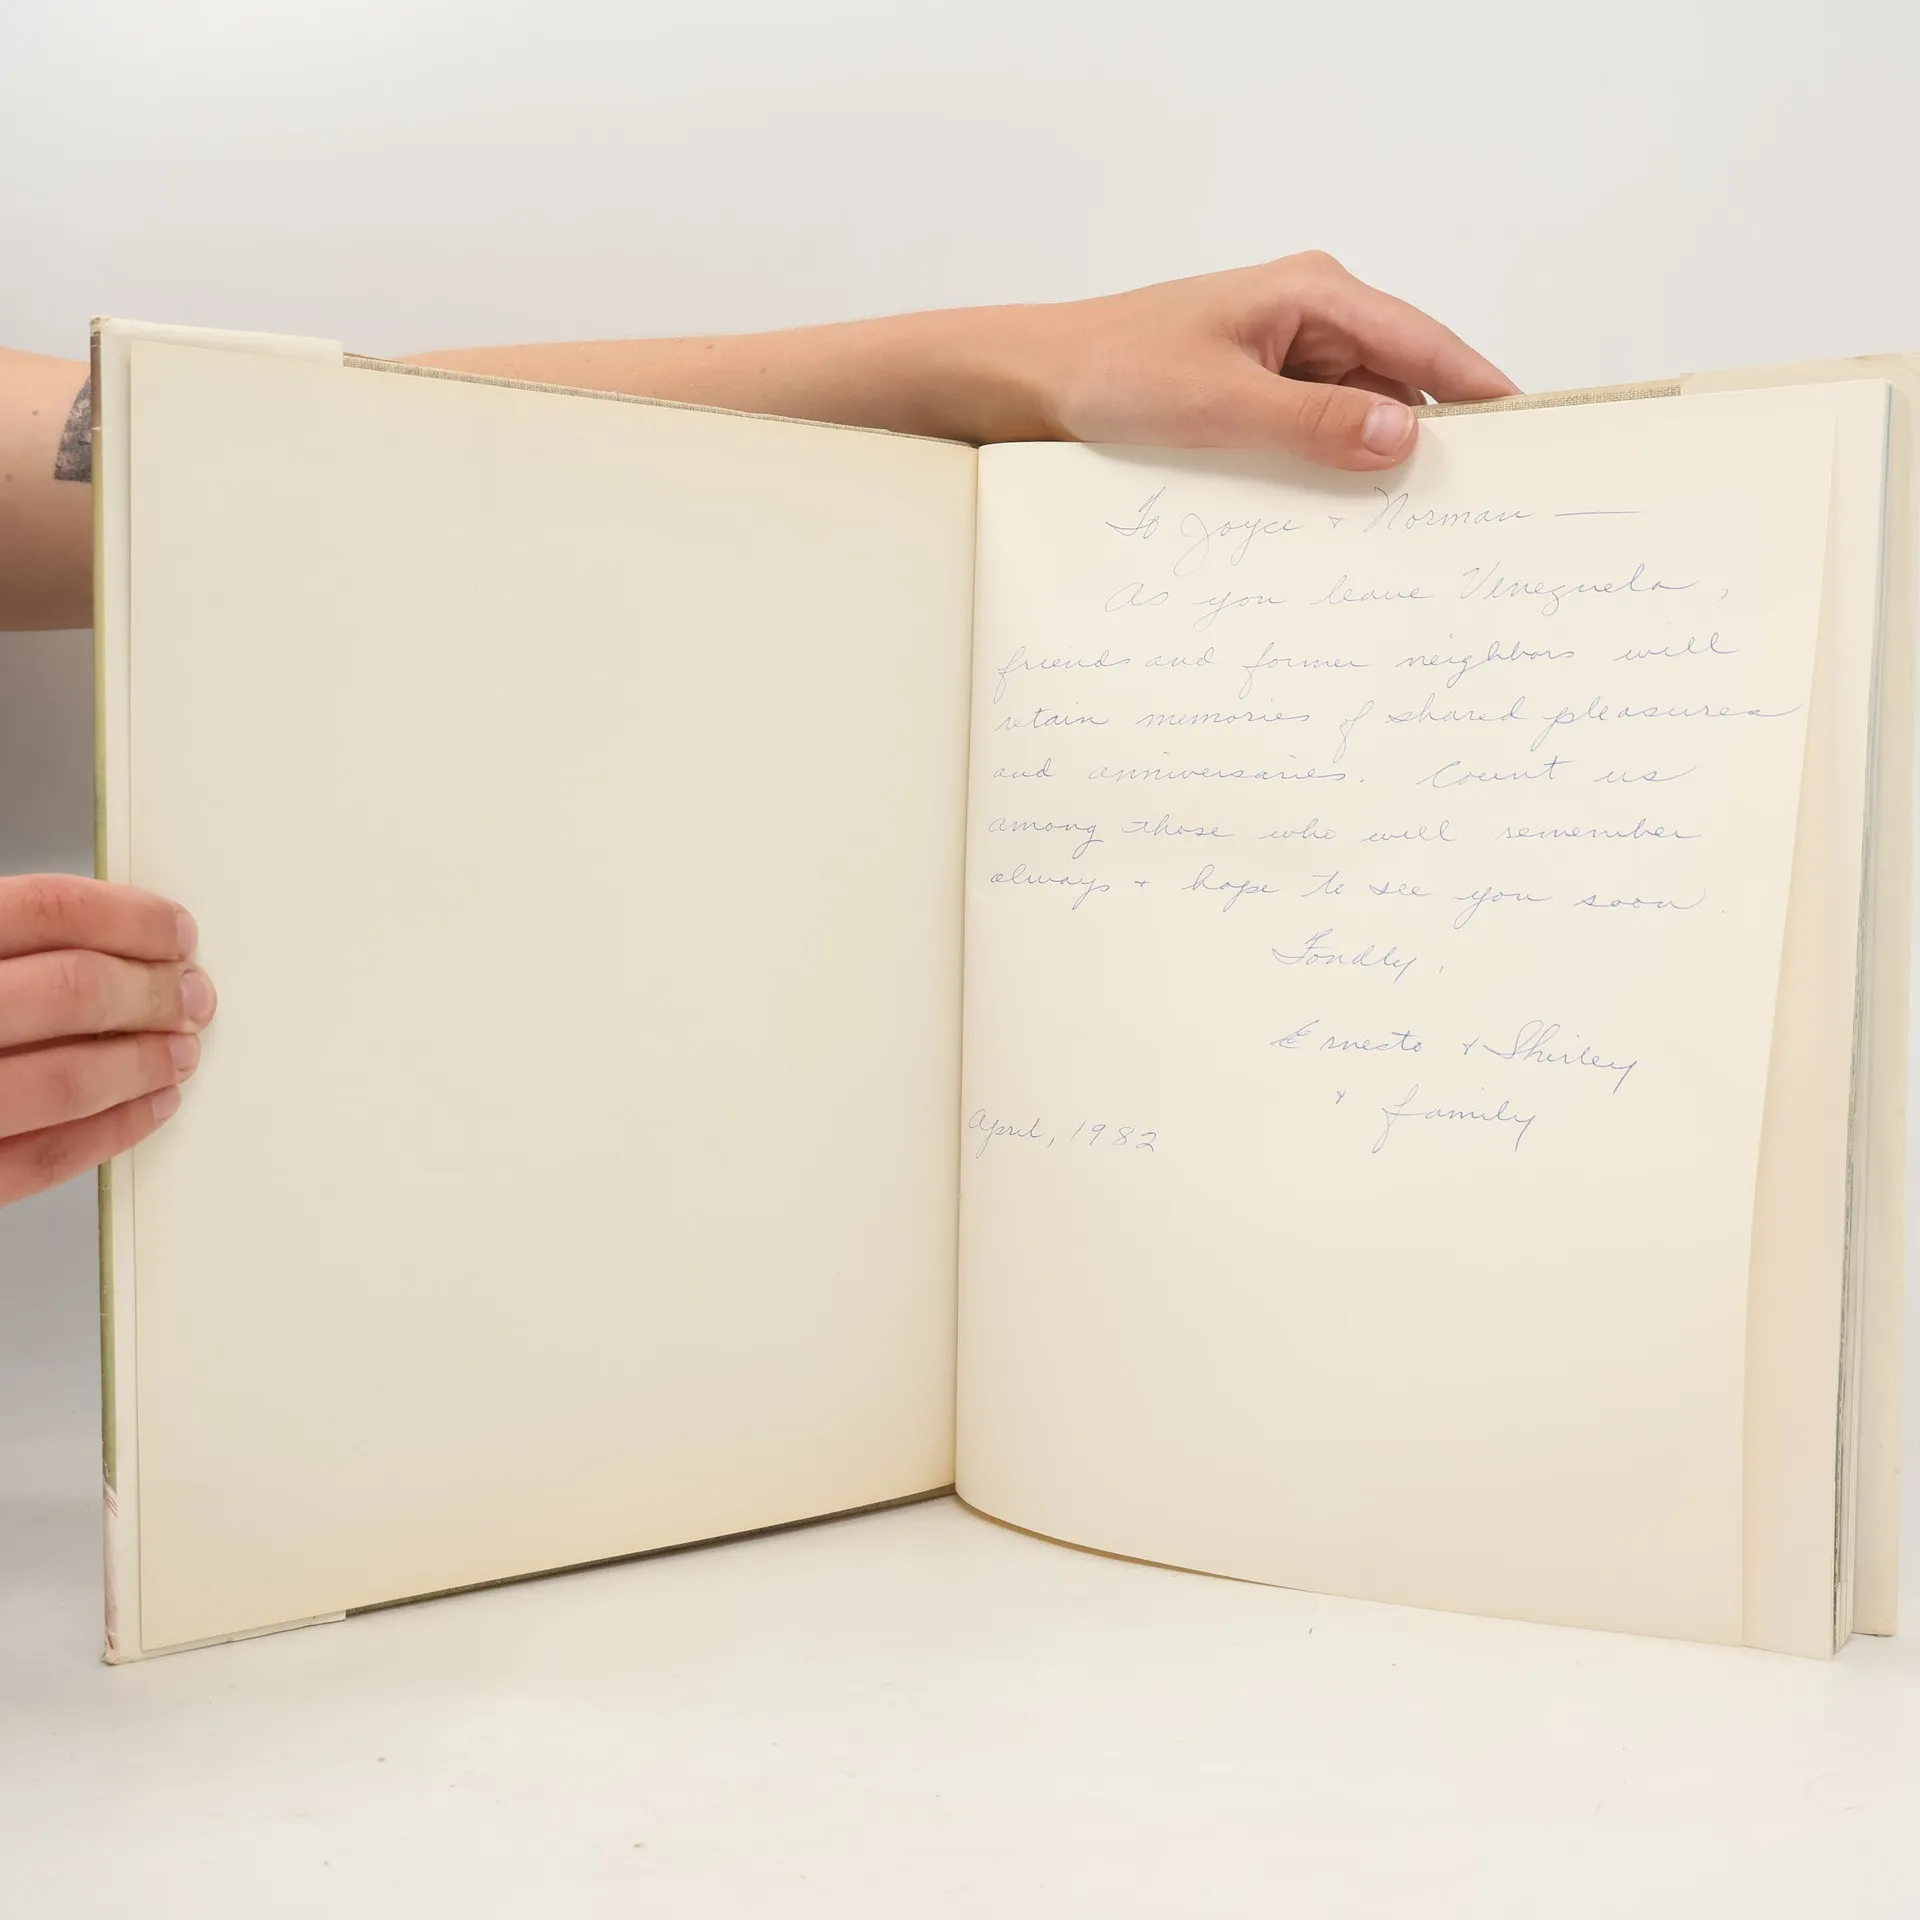 To Joyce + Norman —
As you leave Venezuela,
friends and former neighbors will
retain memories of shared pleasures
and anniversaries. Count us
among those who will remember
always + hope to see you soon.
Fondly,
Ernesto + Shirley
+ family
April, 1982